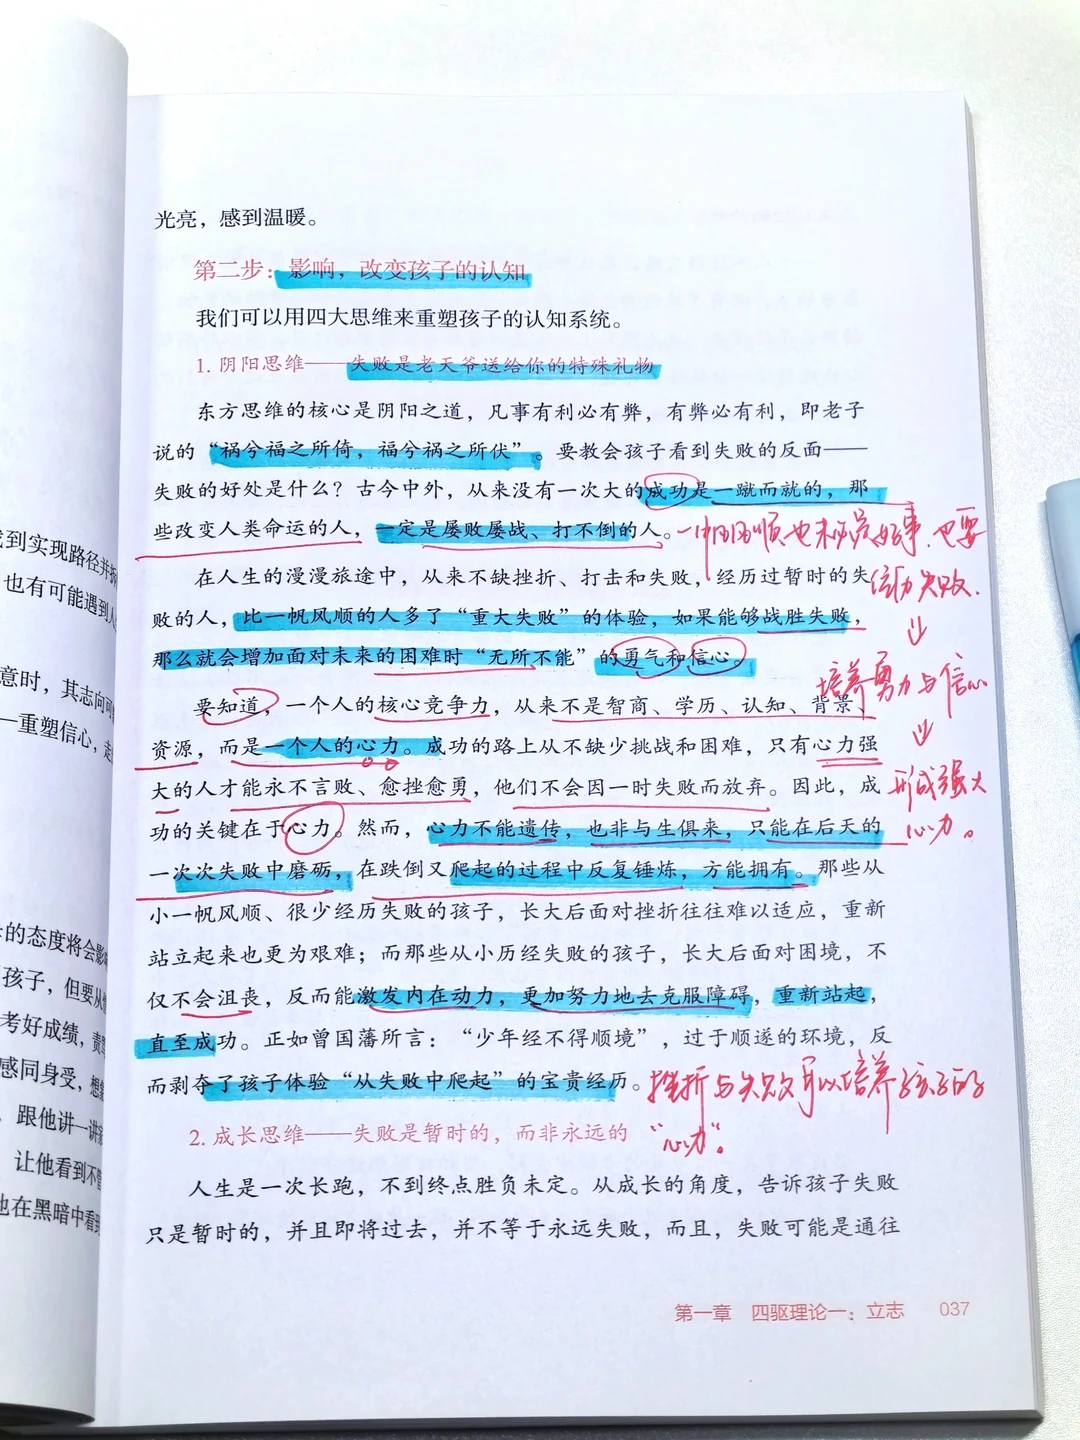 光亮，感到温暖。
第二步：影响，改变孩子的认知
我们可以用四大思维来重塑孩子的认知系统。
1. 阴阳思维——失败是老天爷送给你的特殊礼物
东方思维的核心是阴阳之道，凡事有利必有弊，有弊必有利，即老子
说的“祸兮福之所倚，福兮祸之所伏”。要教会孩子看到失败的反面——
失败的好处是什么？古今中外，从来没有一次大的成功是一蹴而就的，那
些改变人类命运的人，一定是屡败屡战、打不倒的人。
在人生的漫漫旅途中，从来不缺挫折、打击和失败，经历过暂时的失
败的人，比一帆风顺的人多了“重大失败”的体验，如果能够战胜失败，
那么就会增加面对未来的困难时“无所不能”的勇气和信心。
要知道，一个人的核心竞争力，从来不是智商、学历、认知、背景、
资源，而是一个人的心力。成功的路上从不缺少挑战和困难，只有心力强
大的人才能永不言败、愈挫愈勇，他们不会因一时失败而放弃。因此，成
功的关键在于心力。然而，心力不能遗传，也非与生俱来，只能在后天的
一次次失败中磨砺，在跌倒又爬起的过程中反复锤炼，方能拥有。那些从
小一帆风顺、很少经历失败的孩子，长大后面对挫折往往难以适应，重新
站立起来也更为艰难；而那些从小历经失败的孩子，长大后面对困境，不
仅不会沮丧，反而能激发内在动力，更加努力地去克服障碍，重新站起，
直至成功。正如曾国藩所言：“少年经不得顺境”，过于顺遂的环境，反
而剥夺了孩子体验“从失败中爬起”的宝贵经历。
2. 成长思维——失败是暂时的，而非永远的
人生是一次长跑，不到终点胜负未定。从成长的角度，告诉孩子失败
只是暂时的，并且即将过去，并不等于永远失败，而且，失败可能是通往
第一章 四驱理论一：立志 037
一帆风顺也未必是好事，也要
经历失败.
培养勇力与信心
形成强大
心力。
挫折与失败可以培养孩子的
“心力”。
到实现路径并
也有可能遇到
意时，其志向可
—重塑信心，走
的态度将会影
孩子，但要从
考好成绩，责
感同身受，想
跟他讲一讲
让他看到不管
他在黑暗中看到